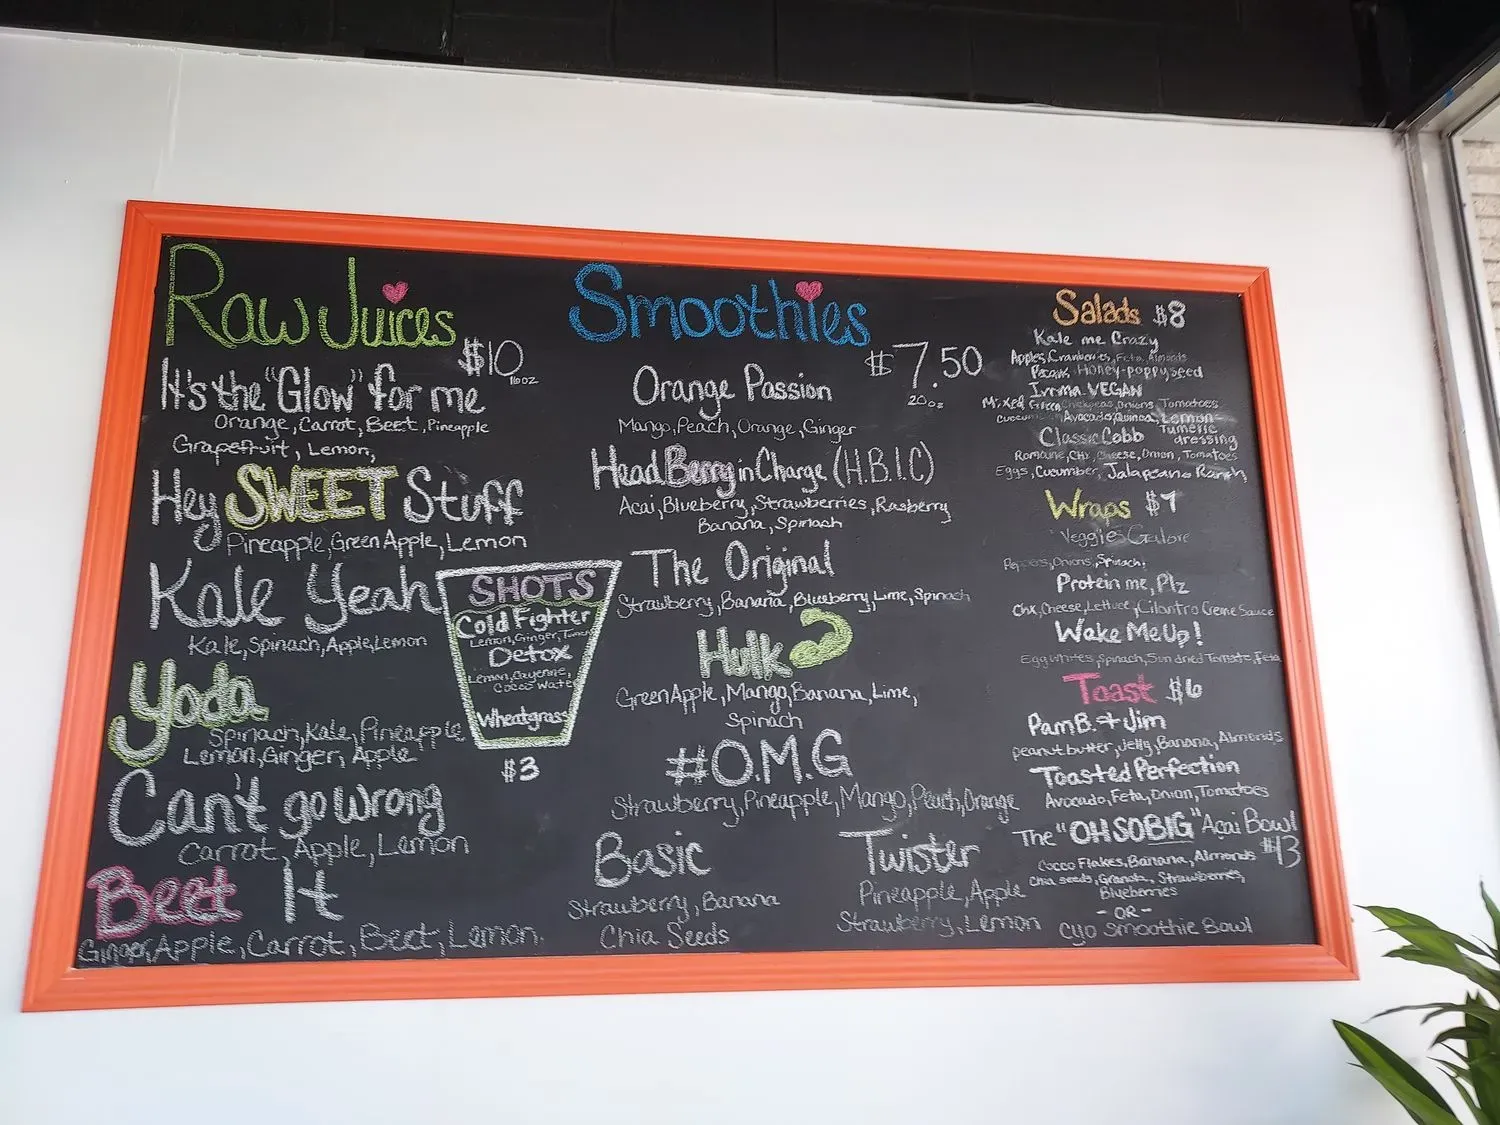 Raw Juices
$10
16oz
It's the "Glow" for me
Orange, Carrot, Beet, Pineapple
Grapefruit, Lemon,
Hey SWEET Stuff
Pineapple, Green Apple, Lemon
Kale Yeah
Kale, Spinach, Apple, Lemon
Yoda
Spinach, Kale, Pineapple
Lemon, Ginger, Apple
Can't go wrong
Carrot, Apple, Lemon
Beet It
Ginger, Apple, Carrot, Beet, Lemon.
SHOTS
Cold Fighter
Lemon, Ginger,
Detox
Lemon, Cayenne,
Cocco Water
Wheatgrass
$3
Smoothies
$7.50
20oz
Orange Passion
Mango, Peach, Orange, Ginger
Head Berry in Charge (H.B.I.C)
Acai, Blueberry, Strawberries, Rasberry
Banana, Spinach
The Original
Strawberry, Banana, Blueberry, Lime, Spinach
Hulk
Green Apple, Mango, Banana, Lime,
Spinach
#O.M.G
Strawberry, Pineapple, Mango, Peach, Orange
Basic
Strawberry, Banana
Chia Seeds
Twister
Pineapple, Apple
Strawberry, Lemon
Salads $8
Kale me Crazy
Apples, Cranberries, Feta, Almonds
Honey-poppyseed
Imma VEGAN
Mixed Green, Chickpeas, Onions, Tomatoes
Avocado, Quinoa, Lemon-
Tumeric
dressing
Classic Cobb
Romaine, Chx, Cheese, Onion, Tomatoes
Eggs, Cucumber, Jalapeano Ranch
Wraps $7
Veggies Galore
Peppers, Onions, Spinach,
Protein me, Plz
Chx, Cheese, Lettuce, Cilantro Creme Sauce
Wake Me Up!
Egg Whites, Spinach, Sun dried Tomato, Feta
Toast $6
Pam B. + Jim
Peanut butter, Jelly, Banana, Almonds
Toasted Perfection
Avocado, Feta, Onion, Tomatoes
The "OH SO BIG" Acai Bowl
$13
Cocco Flakes, Banana, Almonds
Chia seeds, Granola, Strawberries,
Blueberries
- OR -
CYO Smoothie Bowl